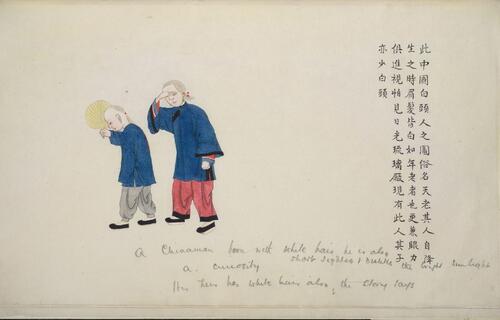 此中國白頭人之圖俗名天老其人自降
生之時眉髮皆白如年老者也更兼眼力
俱進視怕見日光琉璃厰現有此人其子
亦少白頭
A Chinaman born with white hair he is also
short sighted & dislike the bright sun light
a curiosity
His hair has white hairs also, the story says